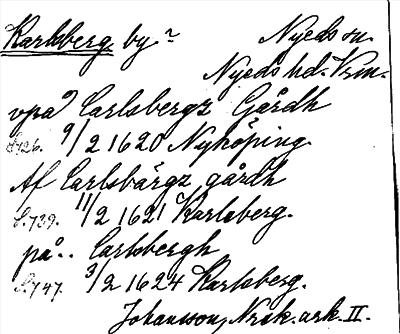 Karlsberg by? Nyeds sn.
Nyeds hd. Vrm.
vpå Carlsbergz Gårdh
S. 726. 9/2 1620 Nyköping.
Af Carlsbärgz gårdh
S. 739. 11/2 1621 Karlsberg.
på.. Carlsbergh
S. 747. 3/2 1624 Karlsberg.
Johansson, Noråk. ark. II.